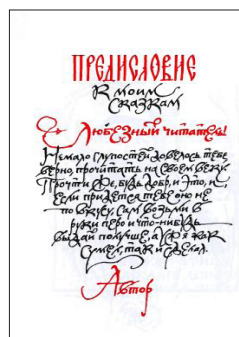 ПРЕДИСЛОВИЕ
К МОИМ
СКАЗКАМ
Любезный читатель!
Немало глупостей довелось тебе,
верно, прочитать на своем веку.
Прочти же, будь добр, и это, и
если придется тебе оно не
по вкусу, сам возьми в
руки перо и что-нибудь
выдай получше, а уж я как
сумел, так и сделал.
Автор